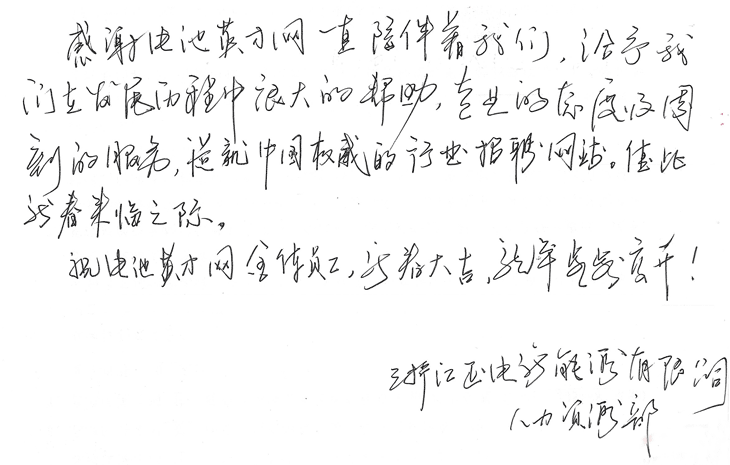 感谢电池英才网一直陪伴着我们，给予我
们在发展历程中很大的帮助，专业的态度及周
到的服务，造就中国权威的行业招聘网站。值此
新春来临之际。
祝电池英才网全体员工，新春大吉，龙年
浙江正电新能源有限公司
人力资源部